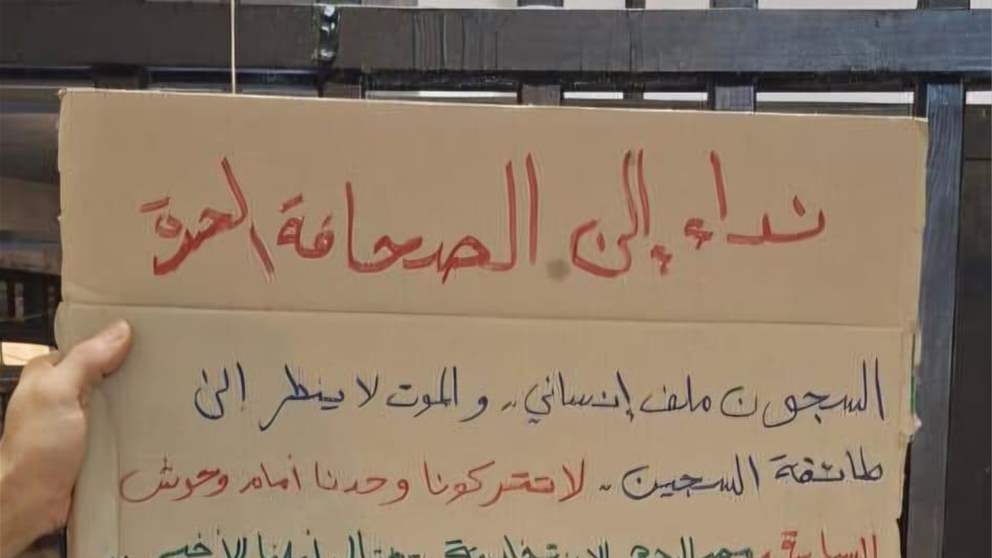 نداء إلى الصحافة الحرة
السجون ملف إنساني.. والموت لا ينظر إلى
طائفة السجين.. لا تتركونا وحدنا أمام وحوش